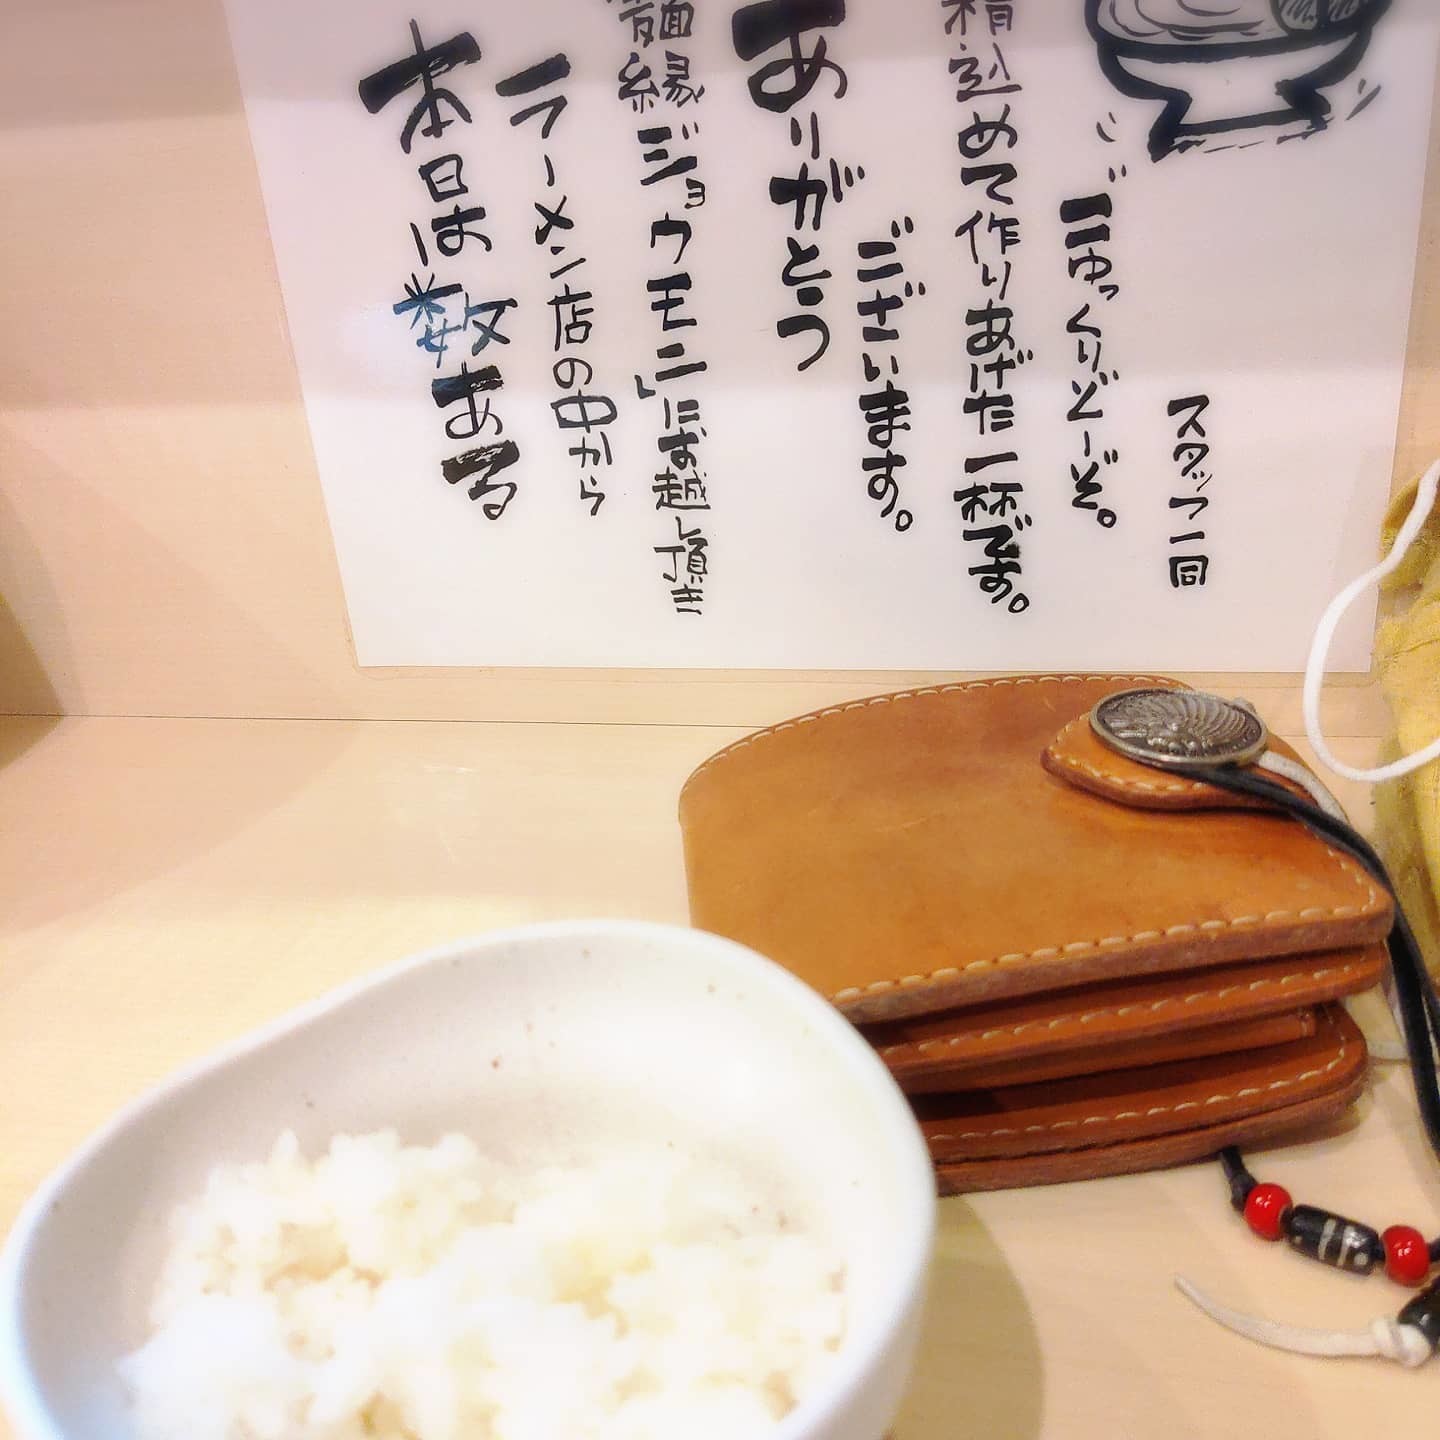 本日は数ある
ラーメン店の中から
麺縁ジョウモニ」にお越し頂き
ありがとう
ございます。
精込めて作りあげた一杯です。
ごゆっくりどーぞ。
スタッフ一同